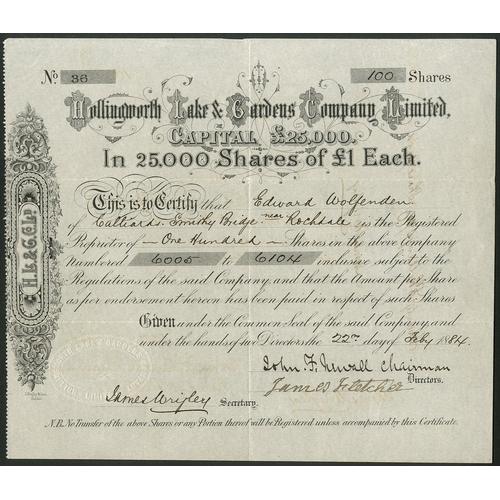 No 36 100 Shares
Hollingworth Lake & Gardens Company Limited,
CAPITAL £25,000.
In 25,000 Shares of £1 Each.
This is to Certify that Edward Wolfenden
of Calliards Smithy Bridge near Rochdale is the Registered
Proprietor of — One Hundred — Shares in the above Company
Numbered 6005 to 6104 inclusive subject to the
Regulations of the said Company, and that the Amount per Share
as per endorsement hereon has been paid in respect of such Shares
Given under the Common Seal of the said Company, and
under the hands of two Directors the 22nd day of Feby 1884.
John F. Newall Chairman
James Fletcher
Directors.
James Wrigley
Secretary.
N.B. No Transfer of the above Shares or any Portion thereof will be Registered unless accompanied by this Certificate.
H.L. & G.C. Ld